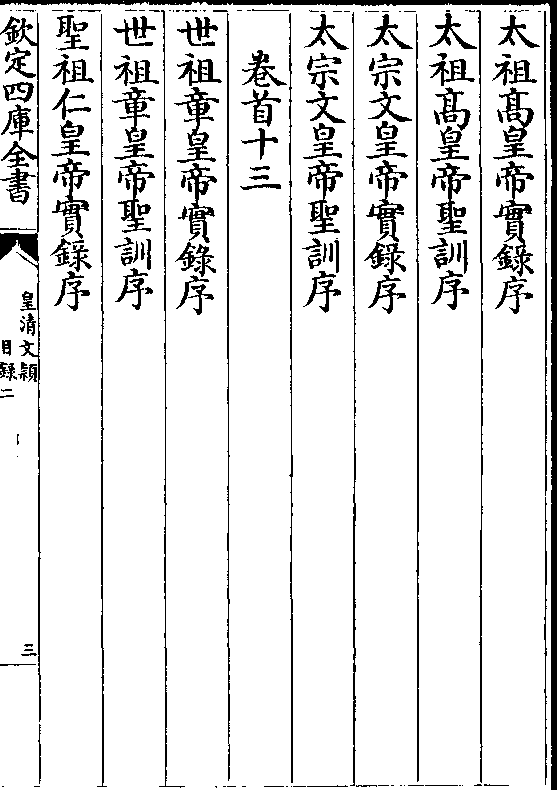 太祖髙皇帝實錄序
太祖髙皇帝聖訓序
太宗文皇帝實錄序
太宗文皇帝聖訓序
卷首十三
世祖章皇帝實錄序
世祖章皇帝聖訓序
聖祖仁皇帝實錄序
欽定四庫全書
皇清文穎
目錄二
三